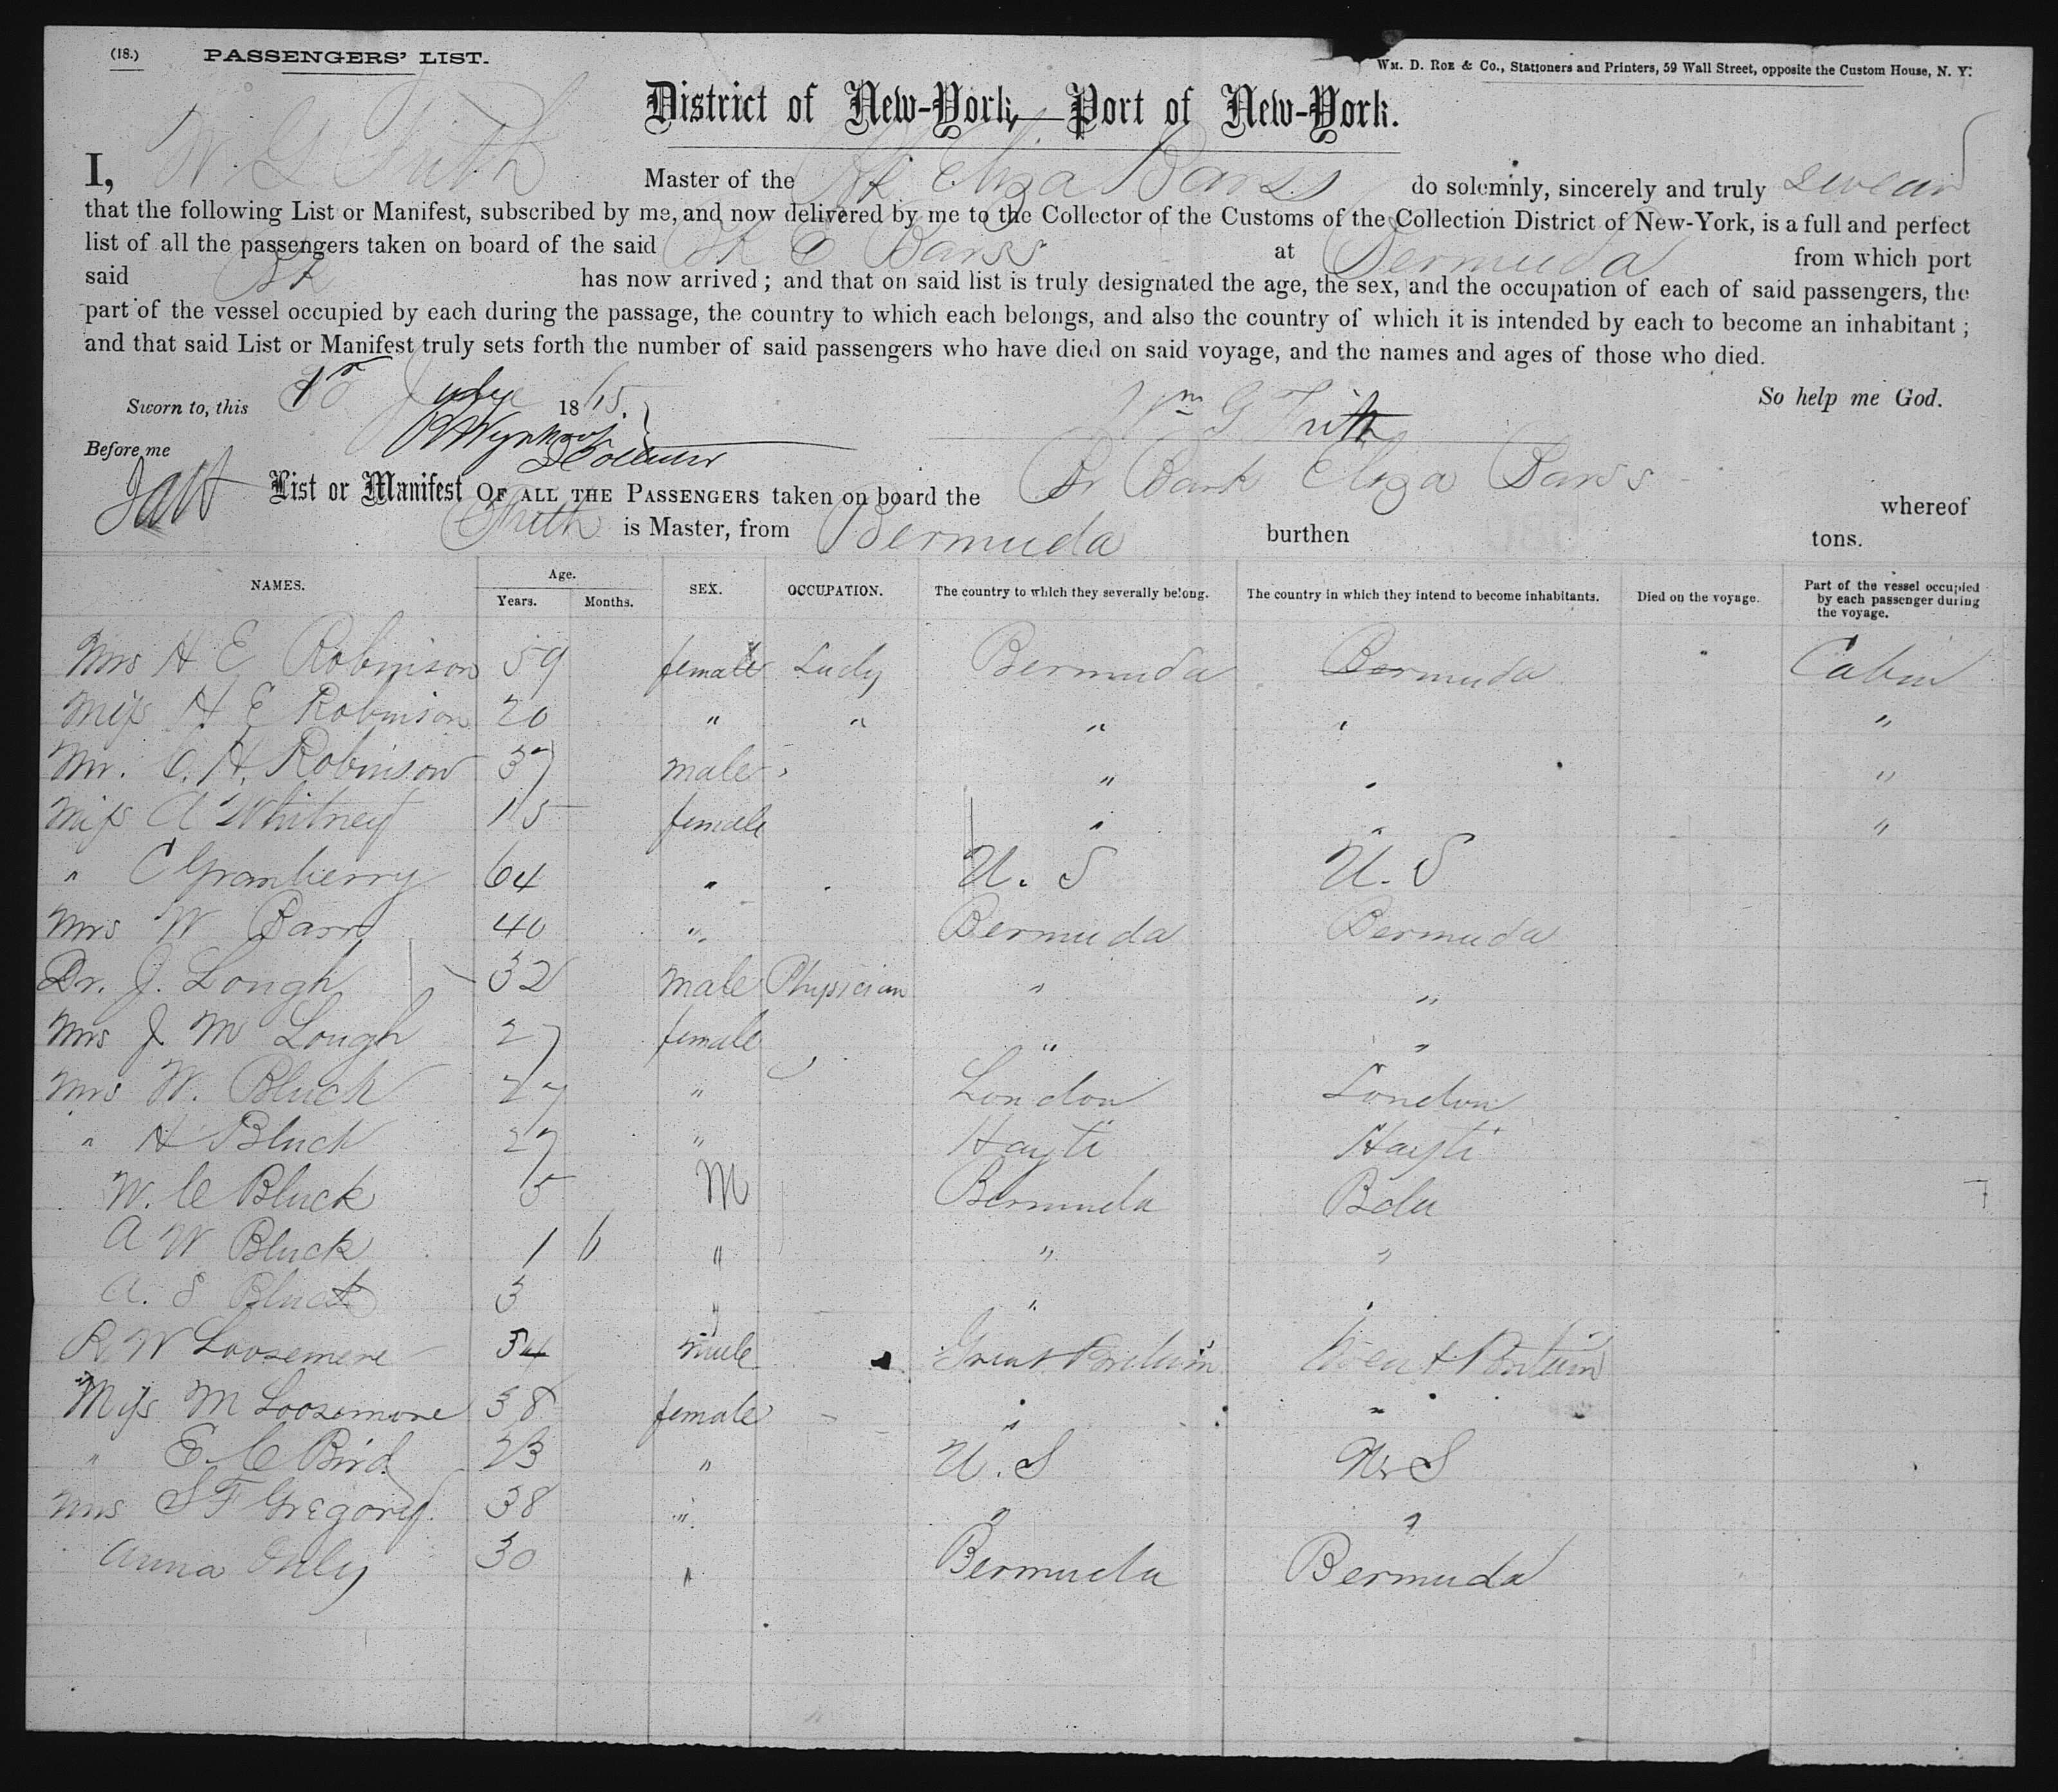 (18.) PASSENGERS' LIST.
WM. D. ROE & Co., Stationers and Printers, 59 Wall Street, opposite the Custom House, N. Y.
District of New-York, Port of New-York.
I, W. G Frith Master of the Bk Eliza Barss do solemnly, sincerely and truly swear
that the following List or Manifest, subscribed by me, and now delivered by me to the Collector of the Customs of the Collection District of New-York, is a full and perfect
list of all the passengers taken on board of the said Bk E Barss at Bermuda from which port
said Bk has now arrived; and that on said list is truly designated the age, the sex, and the occupation of each of said passengers, the
part of the vessel occupied by each during the passage, the country to which each belongs, and also the country of which it is intended by each to become an inhabitant;
and that said List or Manifest truly sets forth the number of said passengers who have died on said voyage, and the names and ages of those who died.
So help me God.
Sworn to, this 18
Wm G Frith
Before me
List or Manifest OF ALL THE PASSENGERS taken on board the Br Bark Eliza Barss whereof
Frith is Master, from Bermuda burthen tons.
NAMES. Age. Years. Months. SEX. OCCUPATION. The country to which they severally belong. The country in which they intend to become inhabitants. Died on the voyage. Part of the vessel occupied by each passenger during the voyage.
Mrs H E Robinson 59 female Lady Bermuda Bermuda " Cabin
Miss H E Robinson 20 " " " " "
Mr. C. H. Robinson 37 male " " " "
Miss A Whitney 15 female " " "
" C Granberry 64 " U. S U. S
Mrs W Barr 40 " Bermuda Bermuda
Dr. J. Lough 32 male Physician " "
Mrs J M Lough 27 female " "
Mrs W. Bluck 27 " London London
" H Bluck 27 " Hayti Hayti
W. C Bluck 5 M Bermuda Bda
A W Bluck 1 6 " " "
A. S Bluck 3 " " "
R W Loosemore 34 male Great Britain Great Britain
Miss M Loosemore 38 female " "
" E. C Bird 23 " U. S U S
Mrs S F Gregory. 38 " " "
Anna 30 " Bermuda Bermuda